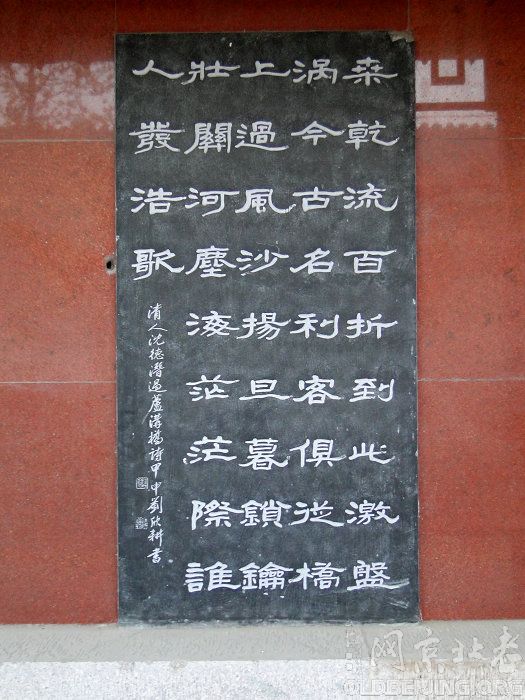 桒乾流百折到此激盤
渦今古名利客俱從橋
上過風沙揚旦暮鎖鑰
壯關河塵海茫茫際誰
人發浩歌
清人沈德潛過蘆溝橋詩甲申劉欣耕書
老北京网
OLDBEIJING.ORG